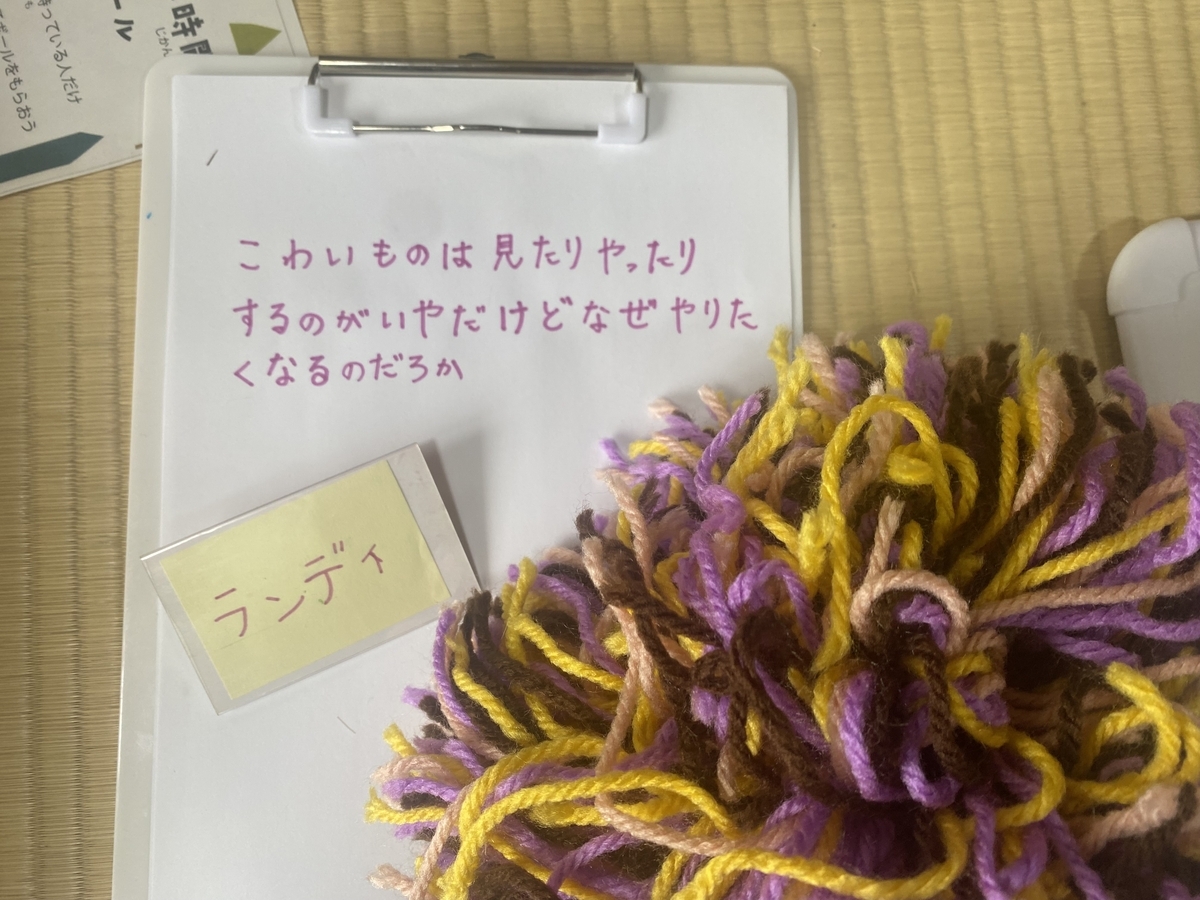 時間
じかん
ール
持っている人だけ
ボールをもらおう
こわいものは見たりやったり
するのがいやだけどなぜやりた
くなるのだろか
ランディ